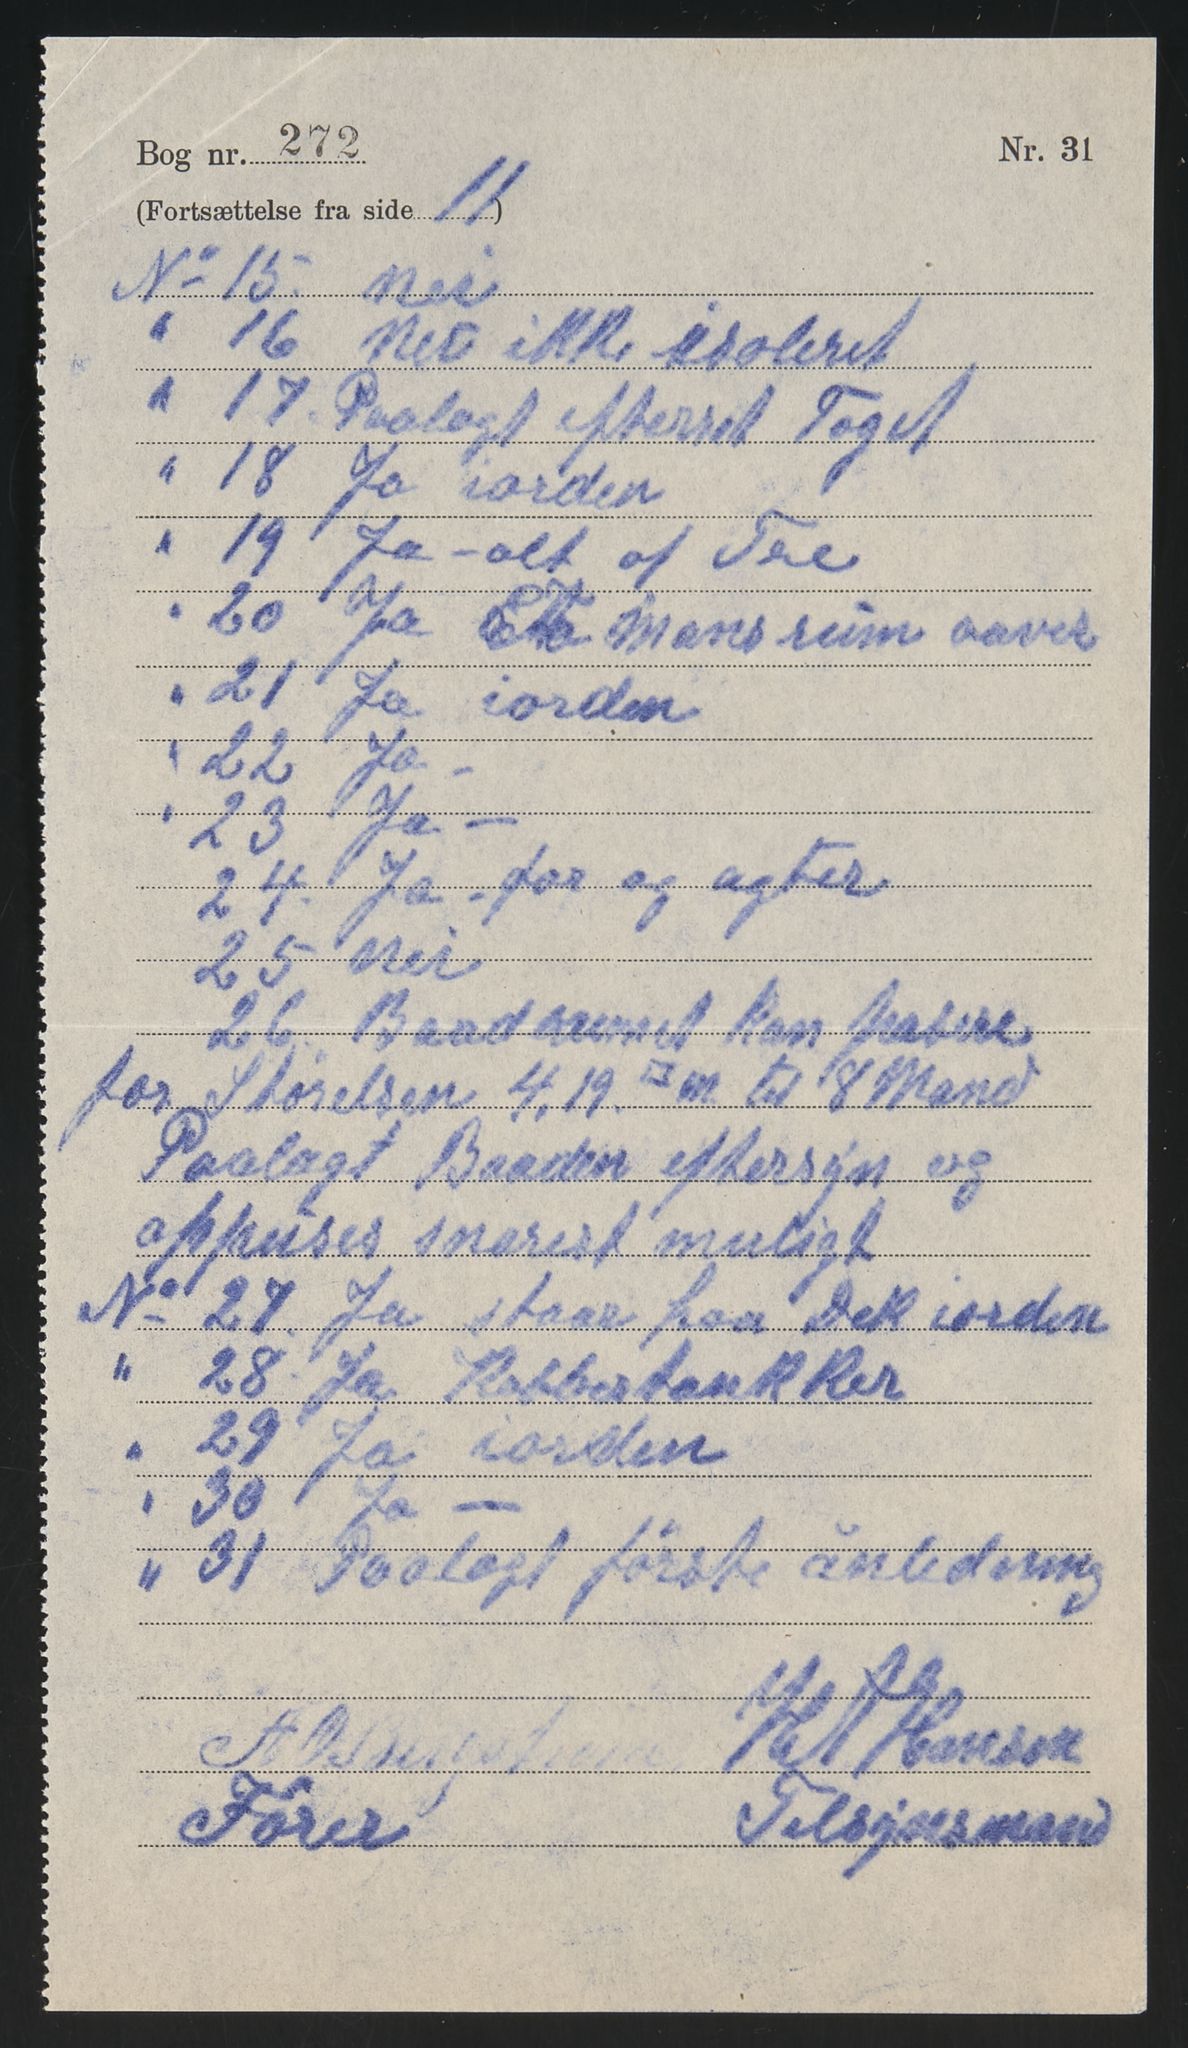 Bog nr. 272
Nr. 31
(Fortsættelse fra side 11)
No 15. nei
" 16 Nei ikke isoleret
" 17. Paalagt efterset Toget
" 18 Ja iorden
" 19 Ja - alt af Tre
" 20 Ja Mans rum
" 21 Ja iorden
" 22 Ja -
" 23 Ja —
24. Ja - for og agter
25 nei
26. Baad kan pasere
for Störelsen 4,19. m til 8 Mand
Paalagt Baaden eftersyn og
oppuses snarest muligt
No 27. Ja staar paa Dek iorden
" 28 Ja Kobbertankker
" 29 Ja iorden
" 30 Ja —
" 31 Paalagt förste ånledning
Hansen
Förer Tilsynsmand